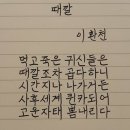 때깔
이환천
먹고죽은 귀신들은
때깔조차 곱다하니
시간지나 나가거든
사후세계 원카도어
고운자태 뽐내리다